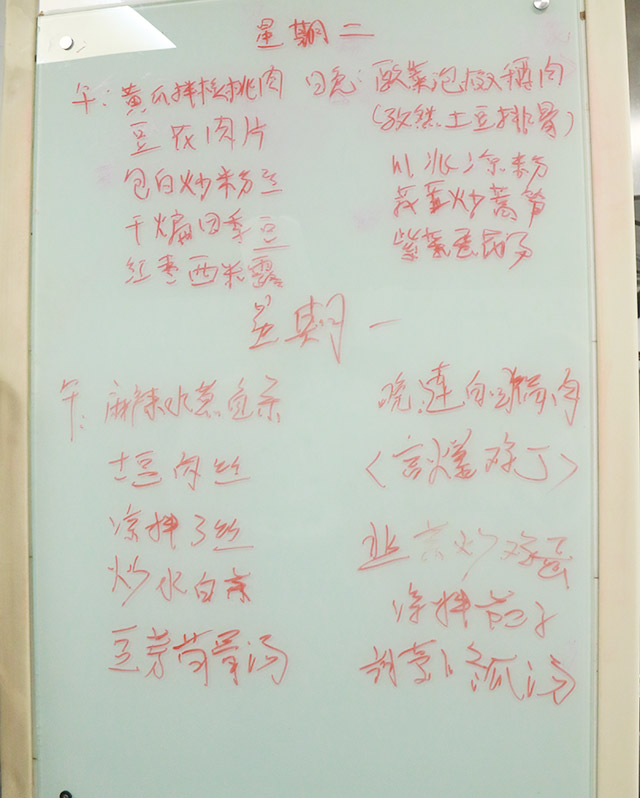 星期二
午:黄瓜拌核桃肉
豆花肉片
包白炒粉丝
干煸四季豆
红枣西米露
晚:酸菜泡
(孜然土豆排骨)
川北凉粉
炒莴笋
紫菜蛋花汤
星期一
午:麻辣水煮鱼
土豆肉丝
凉拌3丝
炒水白菜
豆芽筒骨汤
晚:莲白回锅肉
(宫爆鸡丁)
韭黄炒鸡蛋
凉拌茄子
瓜汤